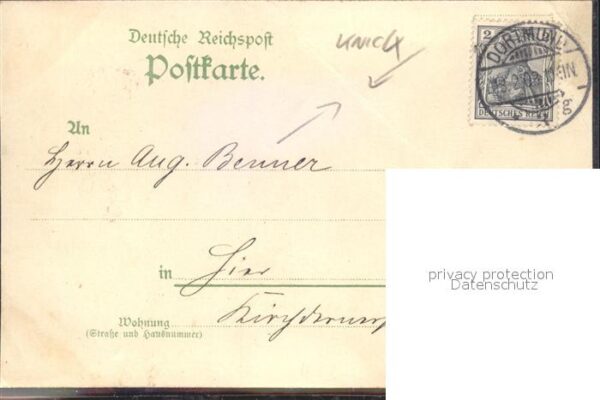 Deutsche Reichspost
Postkarte.
KNICK
2
DORTMUND
DEUTSCHES REICH
g
An
Herrn Aug. Benner
in Hier
Wohnung
(Straße und Hausnummer)
privacy protection
Datenschutz